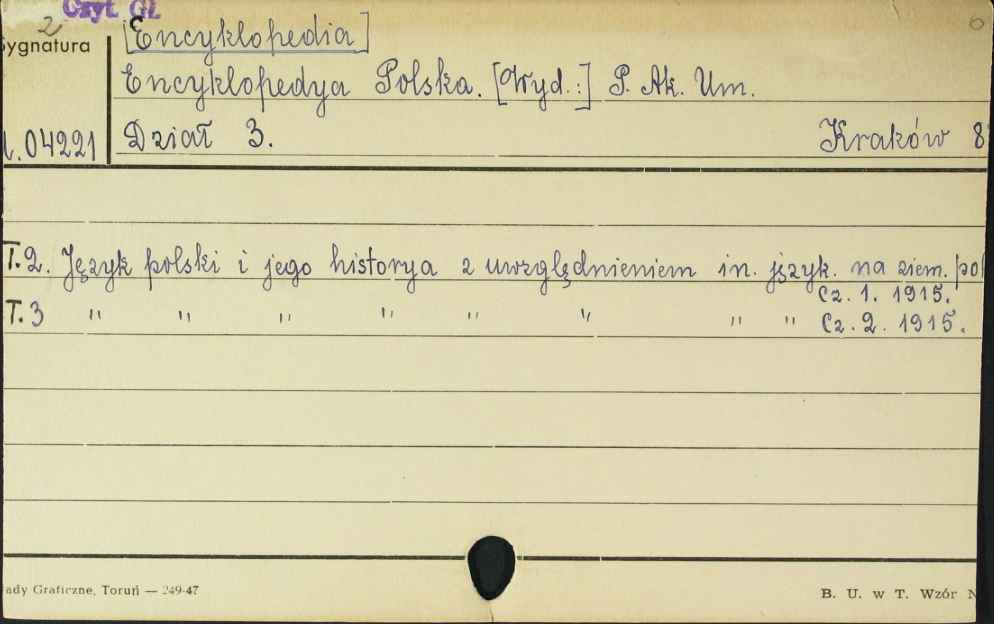 Czyt. Gł.
2
Sygnatura
[Encyklopedia]
Encyklopedya Polska. [Wyd.:] P. Ak. Um.
04221 Dział 3. Kraków 8
T.2. Język polski i jego historya z uwzględnieniem in. języ̨k. na ziem. pol
Cz. 1. 1915.
T.3 " " " " " " " " Cz. 2. 1915.
ady Graficzne, Toruń — 249-47 B. U. w T. Wzór N